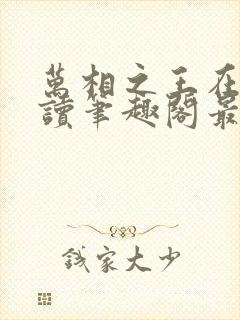 萬相之王在
讀筆趣閣最
錢家大少